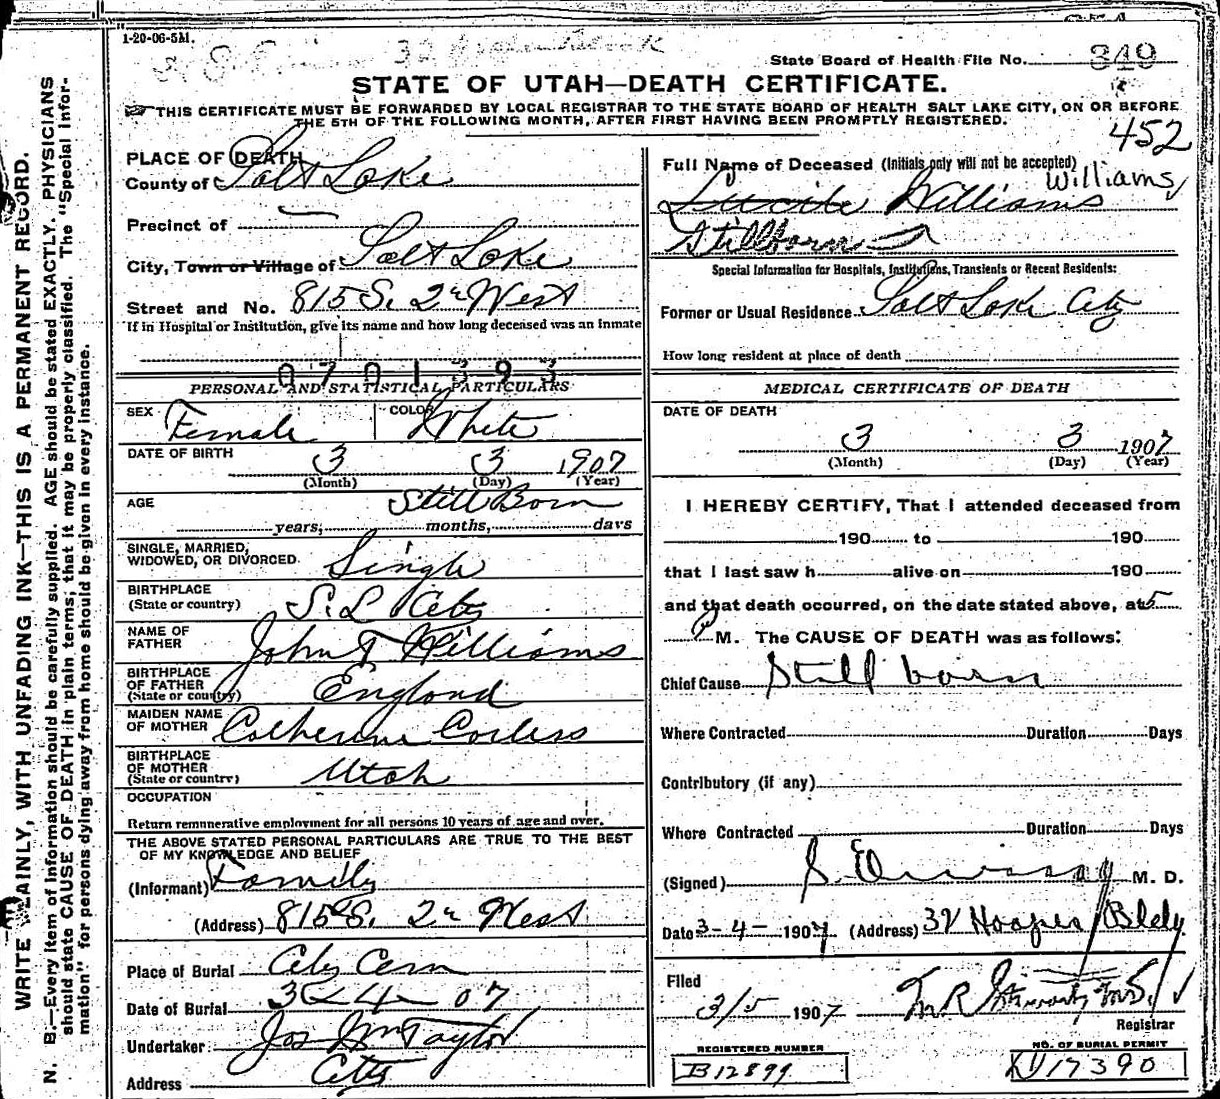 1-20-06-5M.
State Board of Health File No. 349
STATE OF UTAH—DEATH CERTIFICATE.
THIS CERTIFICATE MUST BE FORWARDED BY LOCAL REGISTRAR TO THE STATE BOARD OF HEALTH SALT LAKE CITY, ON OR BEFORE
THE 5TH OF THE FOLLOWING MONTH, AFTER FIRST HAVING BEEN PROMPTLY REGISTERED.
452
PLACE OF DEATH
County of Salt Lake
Precinct of
City, Town or Village of Salt Lake
Street and No. 815 S. 2d West
If in Hospital or Institution, give its name and how long deceased was an inmate
0701393
PERSONAL AND STATISTICAL PARTICULARS
SEX Female COLOR White
DATE OF BIRTH 3 3 1907
(Month) (Day) (Year)
AGE Still Born
years, months, days
SINGLE, MARRIED,
WIDOWED, OR DIVORCED Single
BIRTHPLACE
(State or country) S. L City
NAME OF
FATHER John T Williams
BIRTHPLACE
OF FATHER
(State or country) England
MAIDEN NAME
OF MOTHER Catherine Corless
BIRTHPLACE
OF MOTHER
(State or country) Utah
OCCUPATION
Return remunerative employment for all persons 10 years of age and over.
THE ABOVE STATED PERSONAL PARTICULARS ARE TRUE TO THE BEST
OF MY KNOWLEDGE AND BELIEF
(Informant) Family
(Address) 815 S. 2d West
Place of Burial City Cem
Date of Burial 3-4-07
Undertaker Jos Wm Taylor
Address City
Full Name of Deceased (Initials only will not be accepted)
Williams
Lucile Williams
Stillborn
Special Information for Hospitals, Institutions, Transients or Recent Residents:
Former or Usual Residence Salt Lake City
How long resident at place of death
MEDICAL CERTIFICATE OF DEATH
DATE OF DEATH
3 3 1907
(Month) (Day) (Year)
I HEREBY CERTIFY, That I attended deceased from
190 to 190
that I last saw h alive on 190
and that death occurred, on the date stated above, at 5
M. The CAUSE OF DEATH was as follows:
Chief Cause Still born
Where Contracted Duration Days
Contributory (if any)
Where Contracted Duration Days
(Signed) S. M. D.
Date 3-4-1907 (Address) 32 Hooper Bldg
Filed
3/5 1907
Registrar
REGISTERED NUMBER
B12899
NO. OF BURIAL PERMIT
17390
WRITE PLAINLY, WITH UNFADING INK—THIS IS A PERMANENT RECORD.
N. B.—Every item of information should be carefully supplied. AGE should be stated EXACTLY. PHYSICIANS
should state CAUSE OF DEATH in plain terms, that it may be properly classified. The "Special Infor-
mation" for persons dying away from home should be given in every instance.